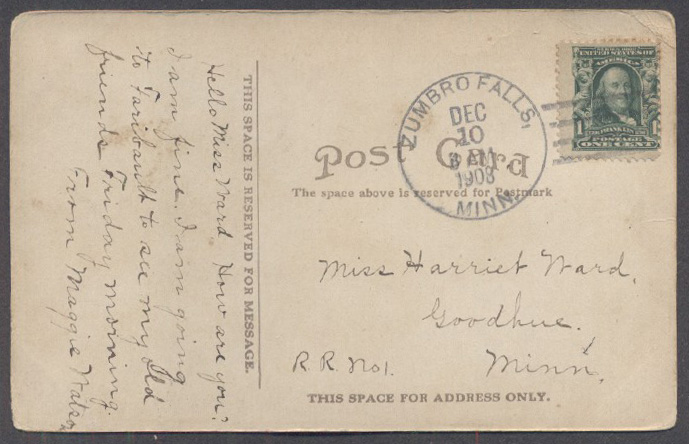 Hello Miss Ward. How are you?
I am fine. I am going
to Faribault to see my old
friends Friday morning.
From Maggie Watson
THIS SPACE IS RESERVED FOR MESSAGE.
Post Card
The space above is reserved for Postmark
ZUMBRO FALLS,
DEC
10
8 AM
1908
MINN.
SERIES 1902
UNITED STATES OF
AMERICA
1 FRANKLIN 1
POSTAGE
ONE CENT
Miss Harriet Ward,
Goodhue.
R.R. No1. Minn.
THIS SPACE FOR ADDRESS ONLY.